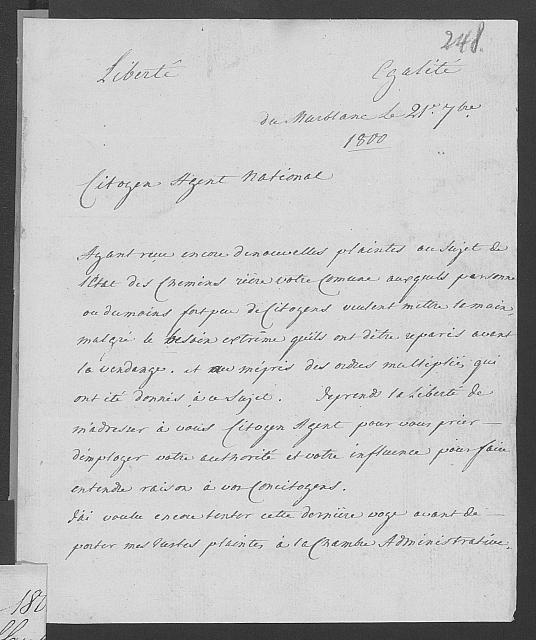 248.
Liberté Egalité
du Murblanc le 21e. 7bre
1800
Citoyen Agent National
Ayant reçu encore de nouvelles plaintes au Sujet de
l'Etat des Chemins rière votre Comune auxquels personne
ou du moins fort peu de Citoyens veulent mettre la main,
malgré le besoin extreme qu'ils ont d'être reparés avant
la vendange. et au mépris des ordres multipliés qui
ont été donnés à ce Sujet. Je prend la Liberté de
m'adresser à vous Citoyen Agent pour vous prier
d'employer votre authorité et votre influence pour faire
entendre raison à vos Concitoyens.
J'ai voulu encore tenter cette dernière voye avant de
porter mes justes plaintes à la Chambre Administrative.
180